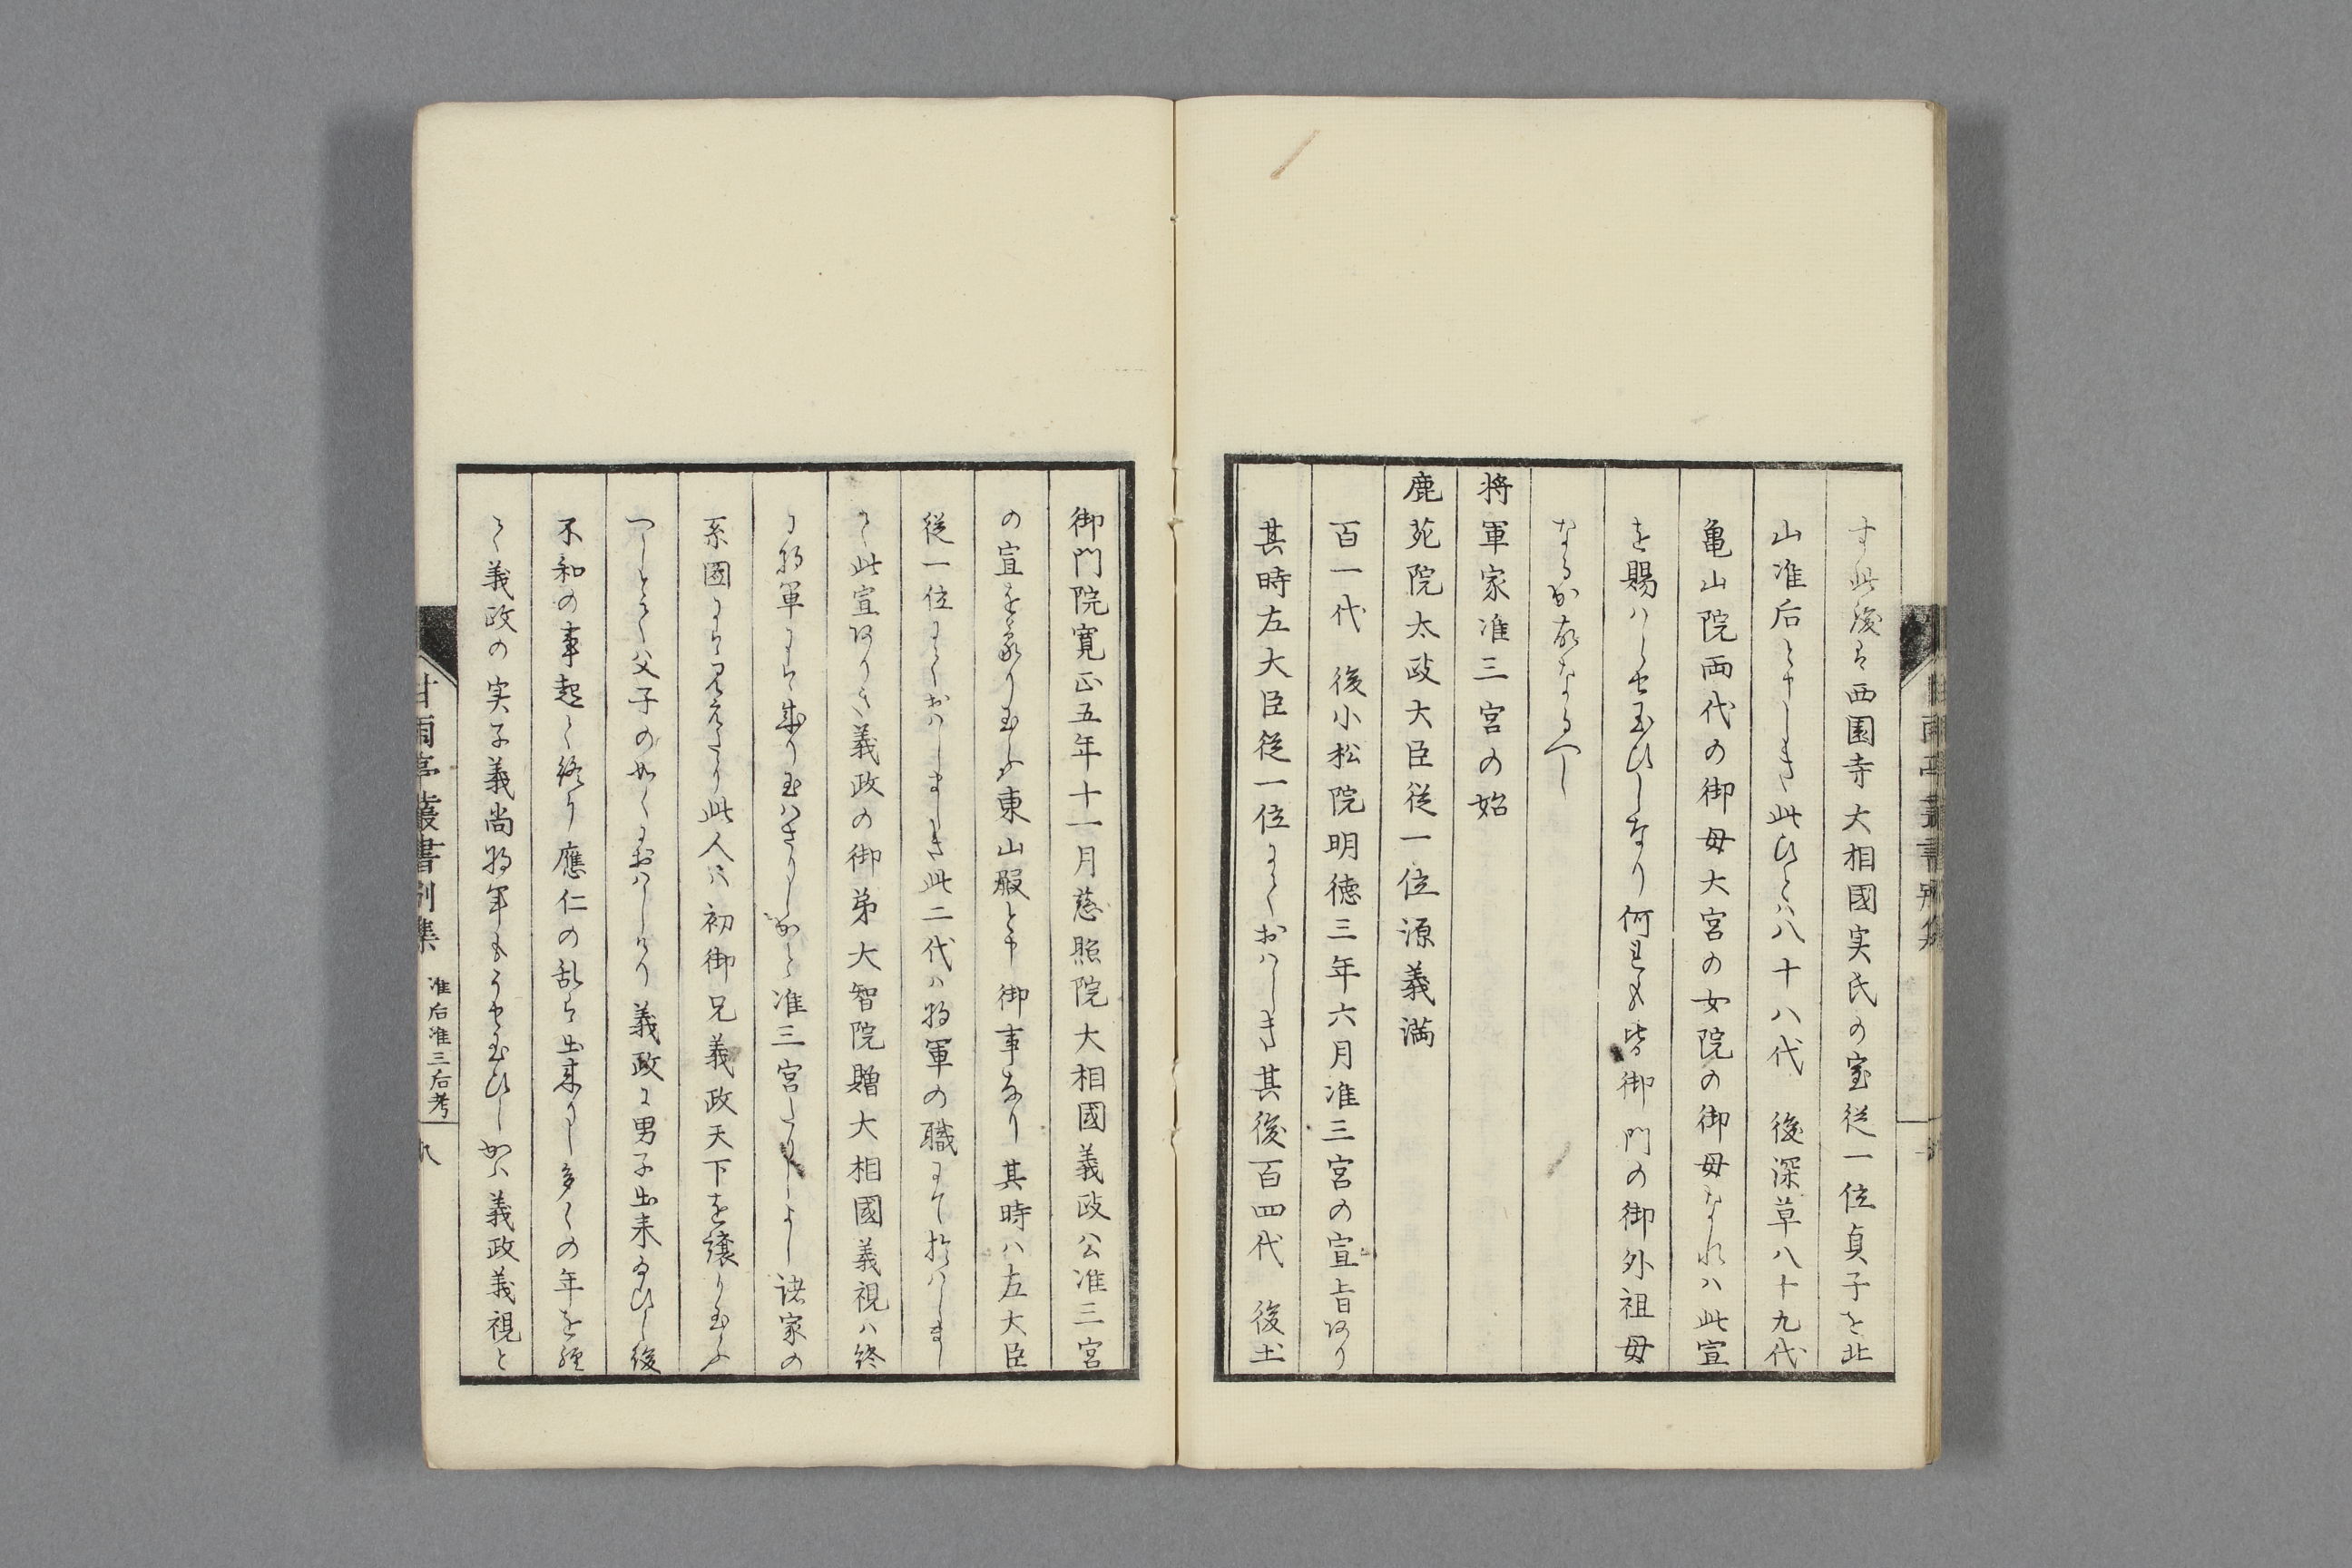 す此後は西園寺大相國実氏の室従一位貞子を北
山准后と申しき此ひとハ八十八代　後深草八十九代
亀山院両代の御母大宮の女院の御母なれハ此宣
を賜ハらせ玉ひしなり何れも皆御門の御外祖母
なるか故なるへし
将軍家准三宮の始
鹿苑院太政大臣従一位源義満
百一代　後小松院明徳三年六月准三宮の宣旨あり
其時左大臣従一位にておハしき其後百四代　後土
御門院寛正五年十一月慈照院大相國義政公准三宮
の宣を蒙り玉ふ東山殿と申御事なり其時ハ左大臣
従一位にておハしましき此二代ハ将軍の職にて於ハしまし
て此宣ありき義政の御弟大智院贈大相國義視ハ終
に将軍にハ成り玉ハさりしかと准三宮たりしよし諸家の
系圖にハ見えたり此人ハ初御兄義政天下を譲り玉ふ
へしとて父子の如くにおハしけり義政に男子出来給ひし後
不和の事起て終り應仁の乱は出来りし多くの年を經
て義政の実子義尚将軍もうせ玉ひしかハ義政義視と
甘雨亭叢書別集
准后准三后考
九